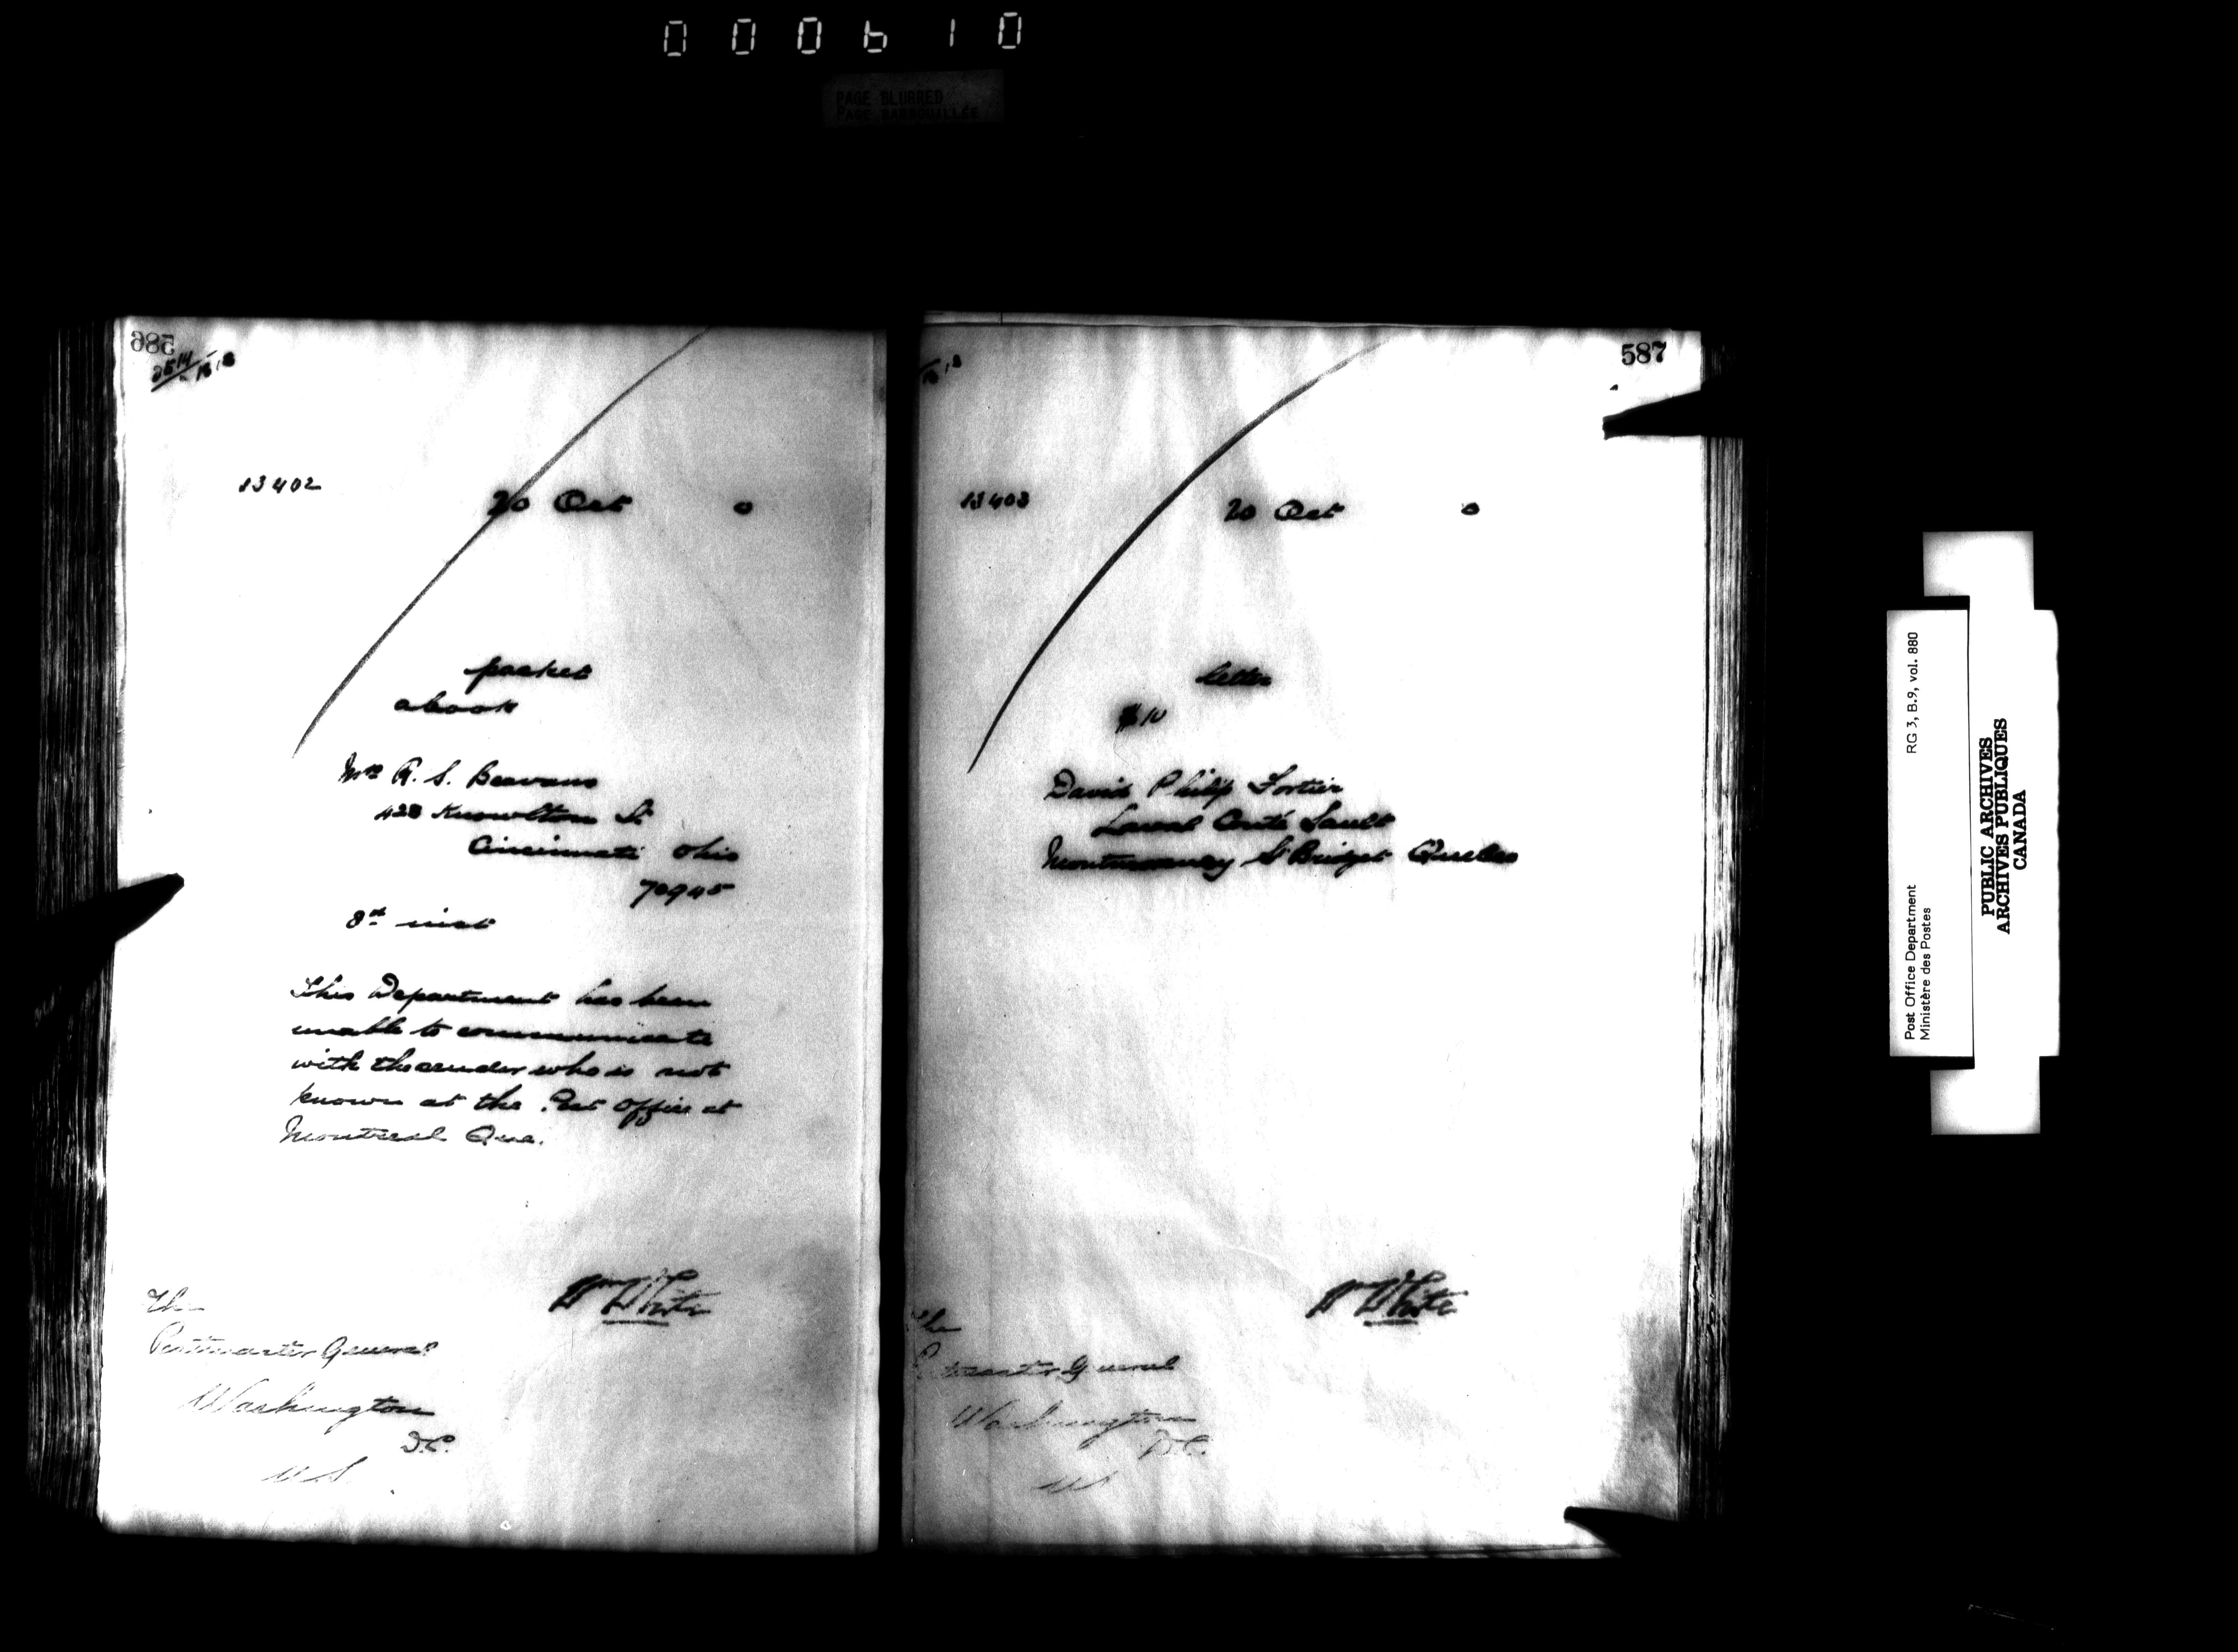 000610
PAGE BLURRED
PAGE BARBOUILLÉE
586
13402
20 Oct 0
packet
a book
Mrs R. S. Beavans
428 Knowlton St
Cincinnati Ohio
70945
8th inst
This Department has been
unable to communicate
with the sender who is not
known at the Post Office at
Montreal Que.
Wm White
The
Postmaster General
Washington
D.C.
U S
587
13403
20 Oct 0
letter
$10
David Philip Fortier
Laval Conté Sault
Montmorency St Bridget Quebec
Wm White
The
Postmaster General
Washington
D.C.
U S
Post Office Department RG 3, B.9, vol. 880
Ministère des Postes
PUBLIC ARCHIVES
ARCHIVES PUBLIQUES
CANADA